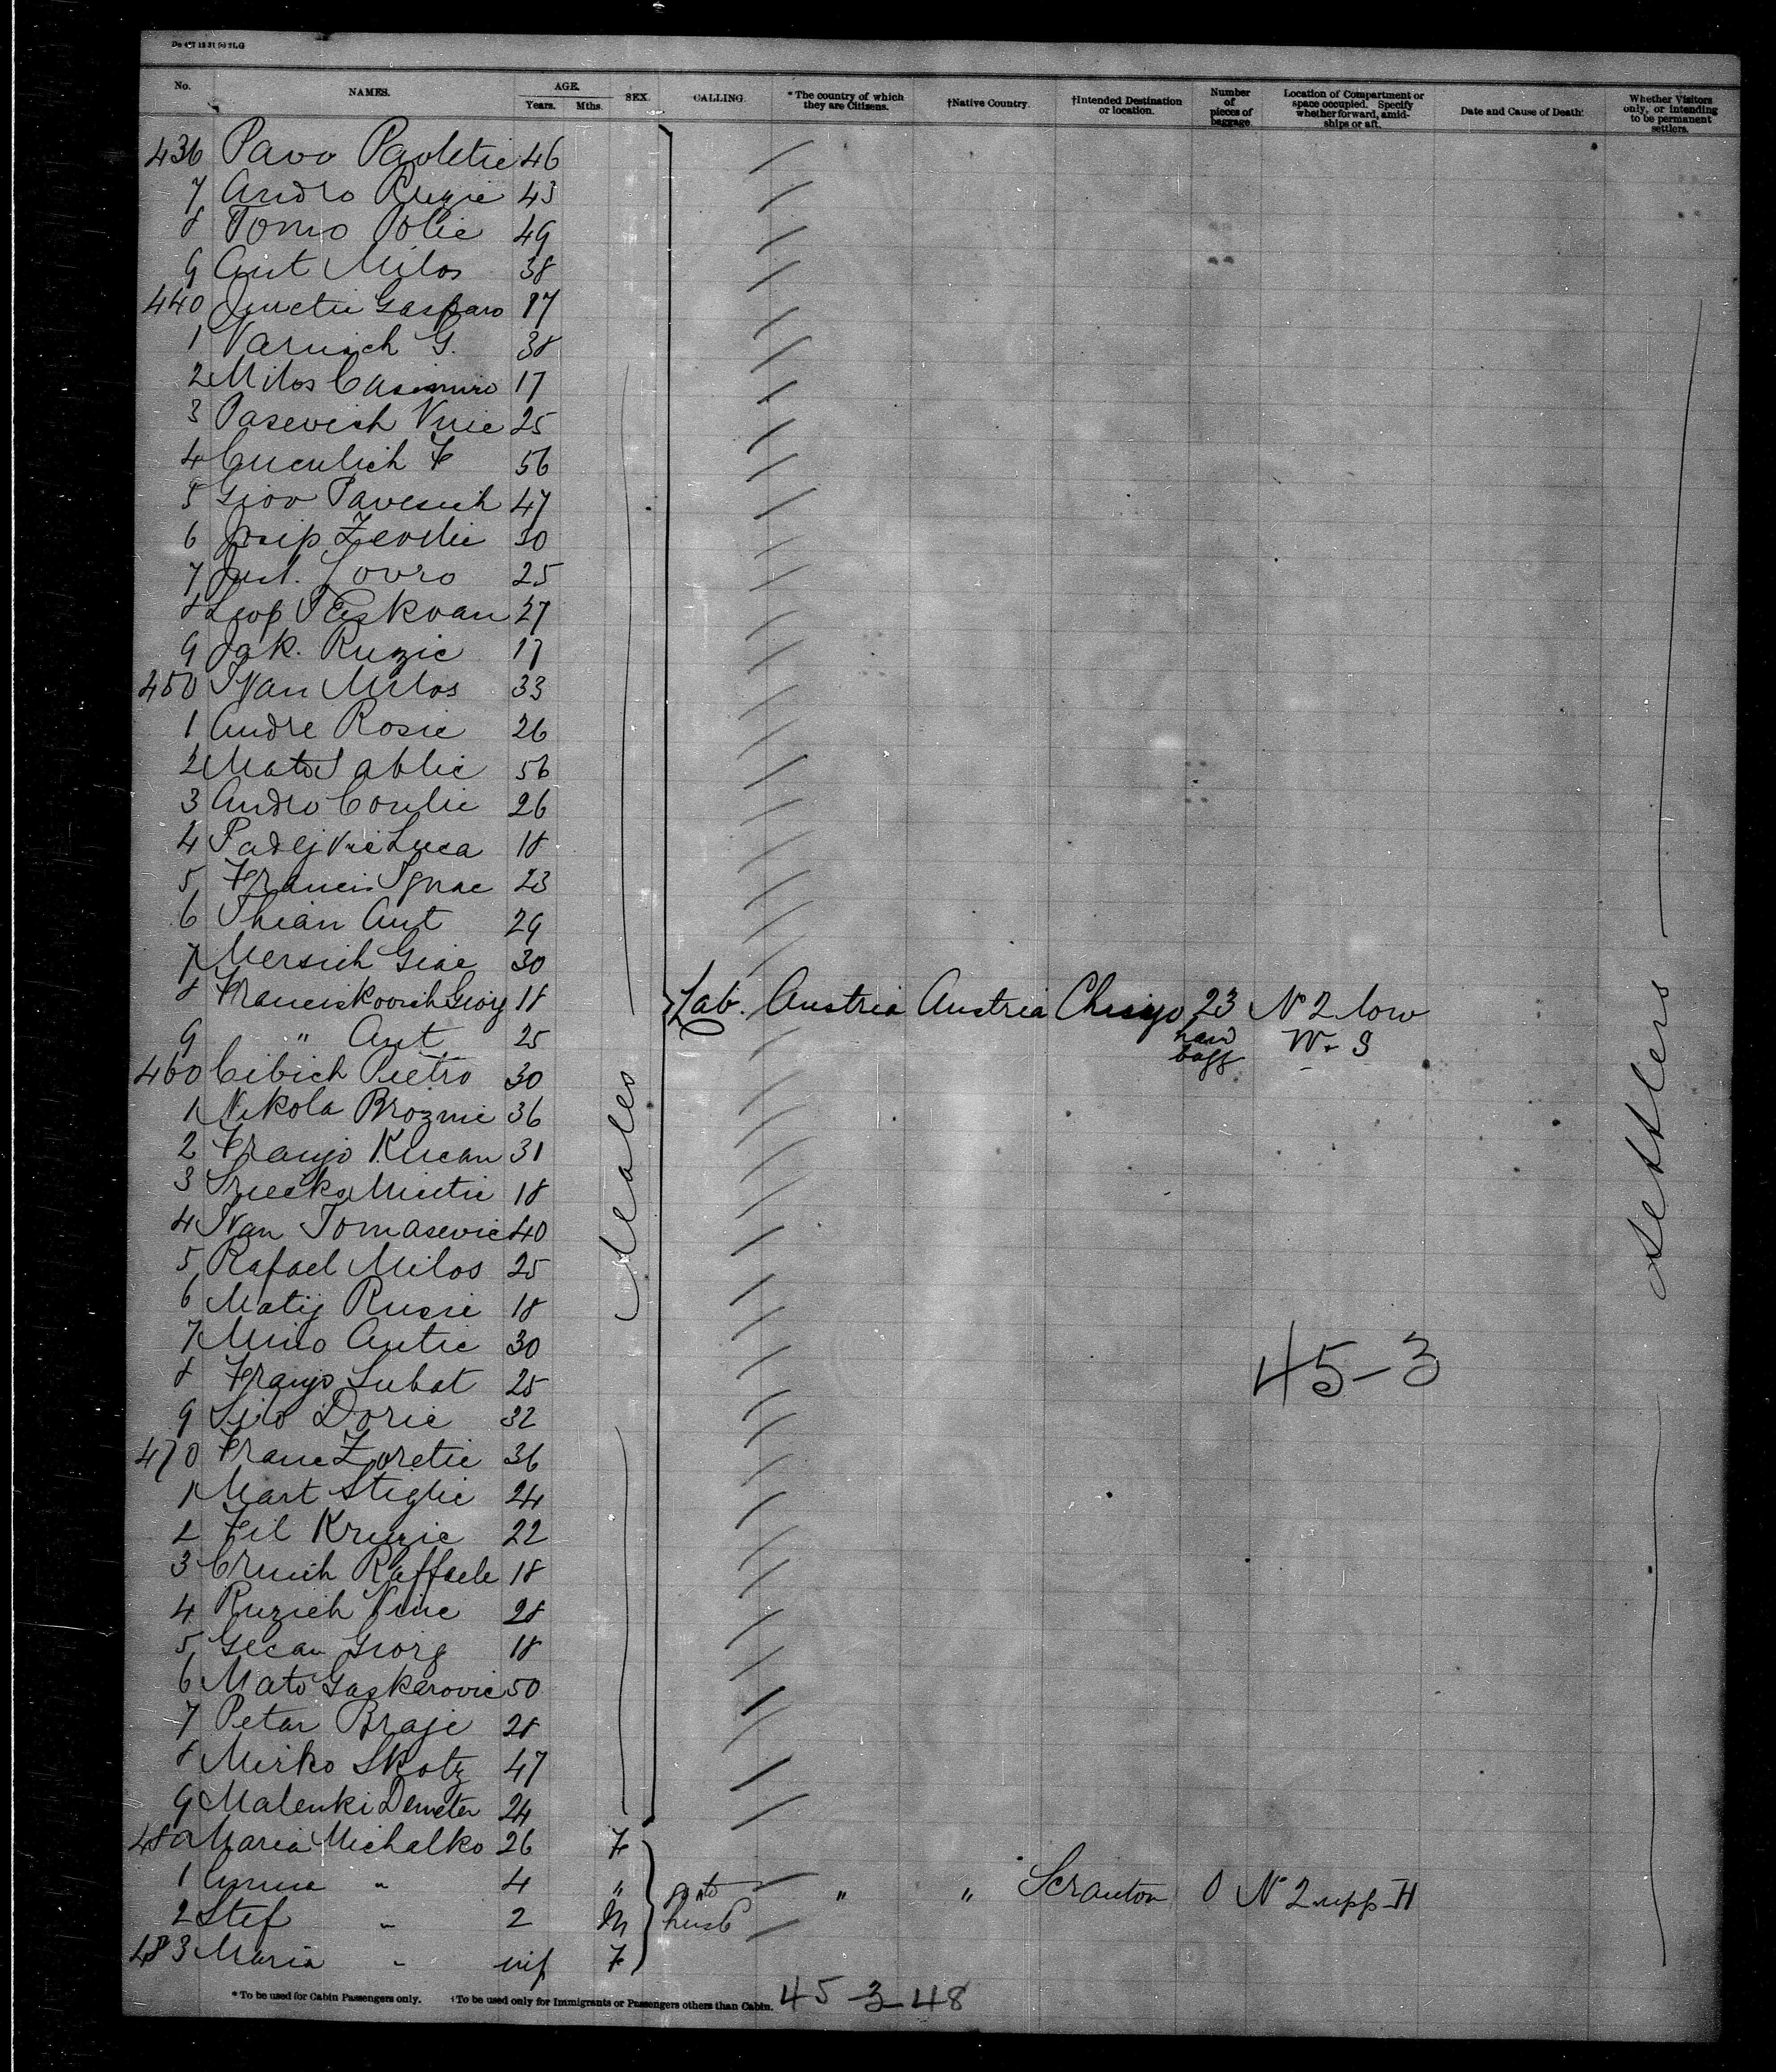 No. NAMES. AGE. Years. Mths. SEX. CALLING. * The country of which they are Citizens. †Native Country. †Intended Destination or location. Number of pieces of baggage Location of Compartment or space occupied. Specify whether forward, amid-ships or aft. Date and Cause of Death. Whether Visitors only, or intending to be permanent settlers.
436 Pavo Pavletic 46
7 Andro Ruzic 43
8 Tomo Polic 49
9 Ant Milos 38
440 Gasparo 17
1 G. 38
2 Milos Casimiro 17
3 Pasevich Vinc 25
4 Cuculich F 56
5 Giov Pavesich 47
6 Josip 30
7 Lovro 25
8 Leop 27
9 Jak. Ruzic 17
450 Ivan Milos 33
1 Andre Rosic 26
2 Mato Sablic 56
3 Andro 26
4 Luca 18
5 Ignac 23
6 Ant 29
7 Mersich Giac 30
8 Franciskovich Giorg 18 Lab. Austria Austria Chicgo 23 No 2 low
9 " Ant 25 hand bagg W. S
460 Cibich Pietro 30
1 Nikola Broznic 36
2 Franjo Kucan 31
3 Srecko 18
4 Ivan Tomasevic 40
5 Rafael Milos 25
6 Matij 18
7 Antic 30
8 Franjo Lubat 25
9 Doric 32
470 Franc Zoretic 36
1 Mart Stiglic 24
2 Fil Kruzic 22
3 Raffaele 18
4 Ruzich Vinc 28
5 Gecan Giorg 18
6 Mato Gasparovic 50
7 Petar Braje 28
8 Mirko Skotz 47
9 Malenki Demeter 24
480 Maria Michalko 26 F
1 Anna " 4 " go to " " Scranton 0 No 2 upp H
2 Stef " 2 M husb
483 Maria " inf F
Males
settlers
45-3
* To be used for Cabin Passengers only. †To be used only for Immigrants or Passengers others than Cabin. 45-3-48